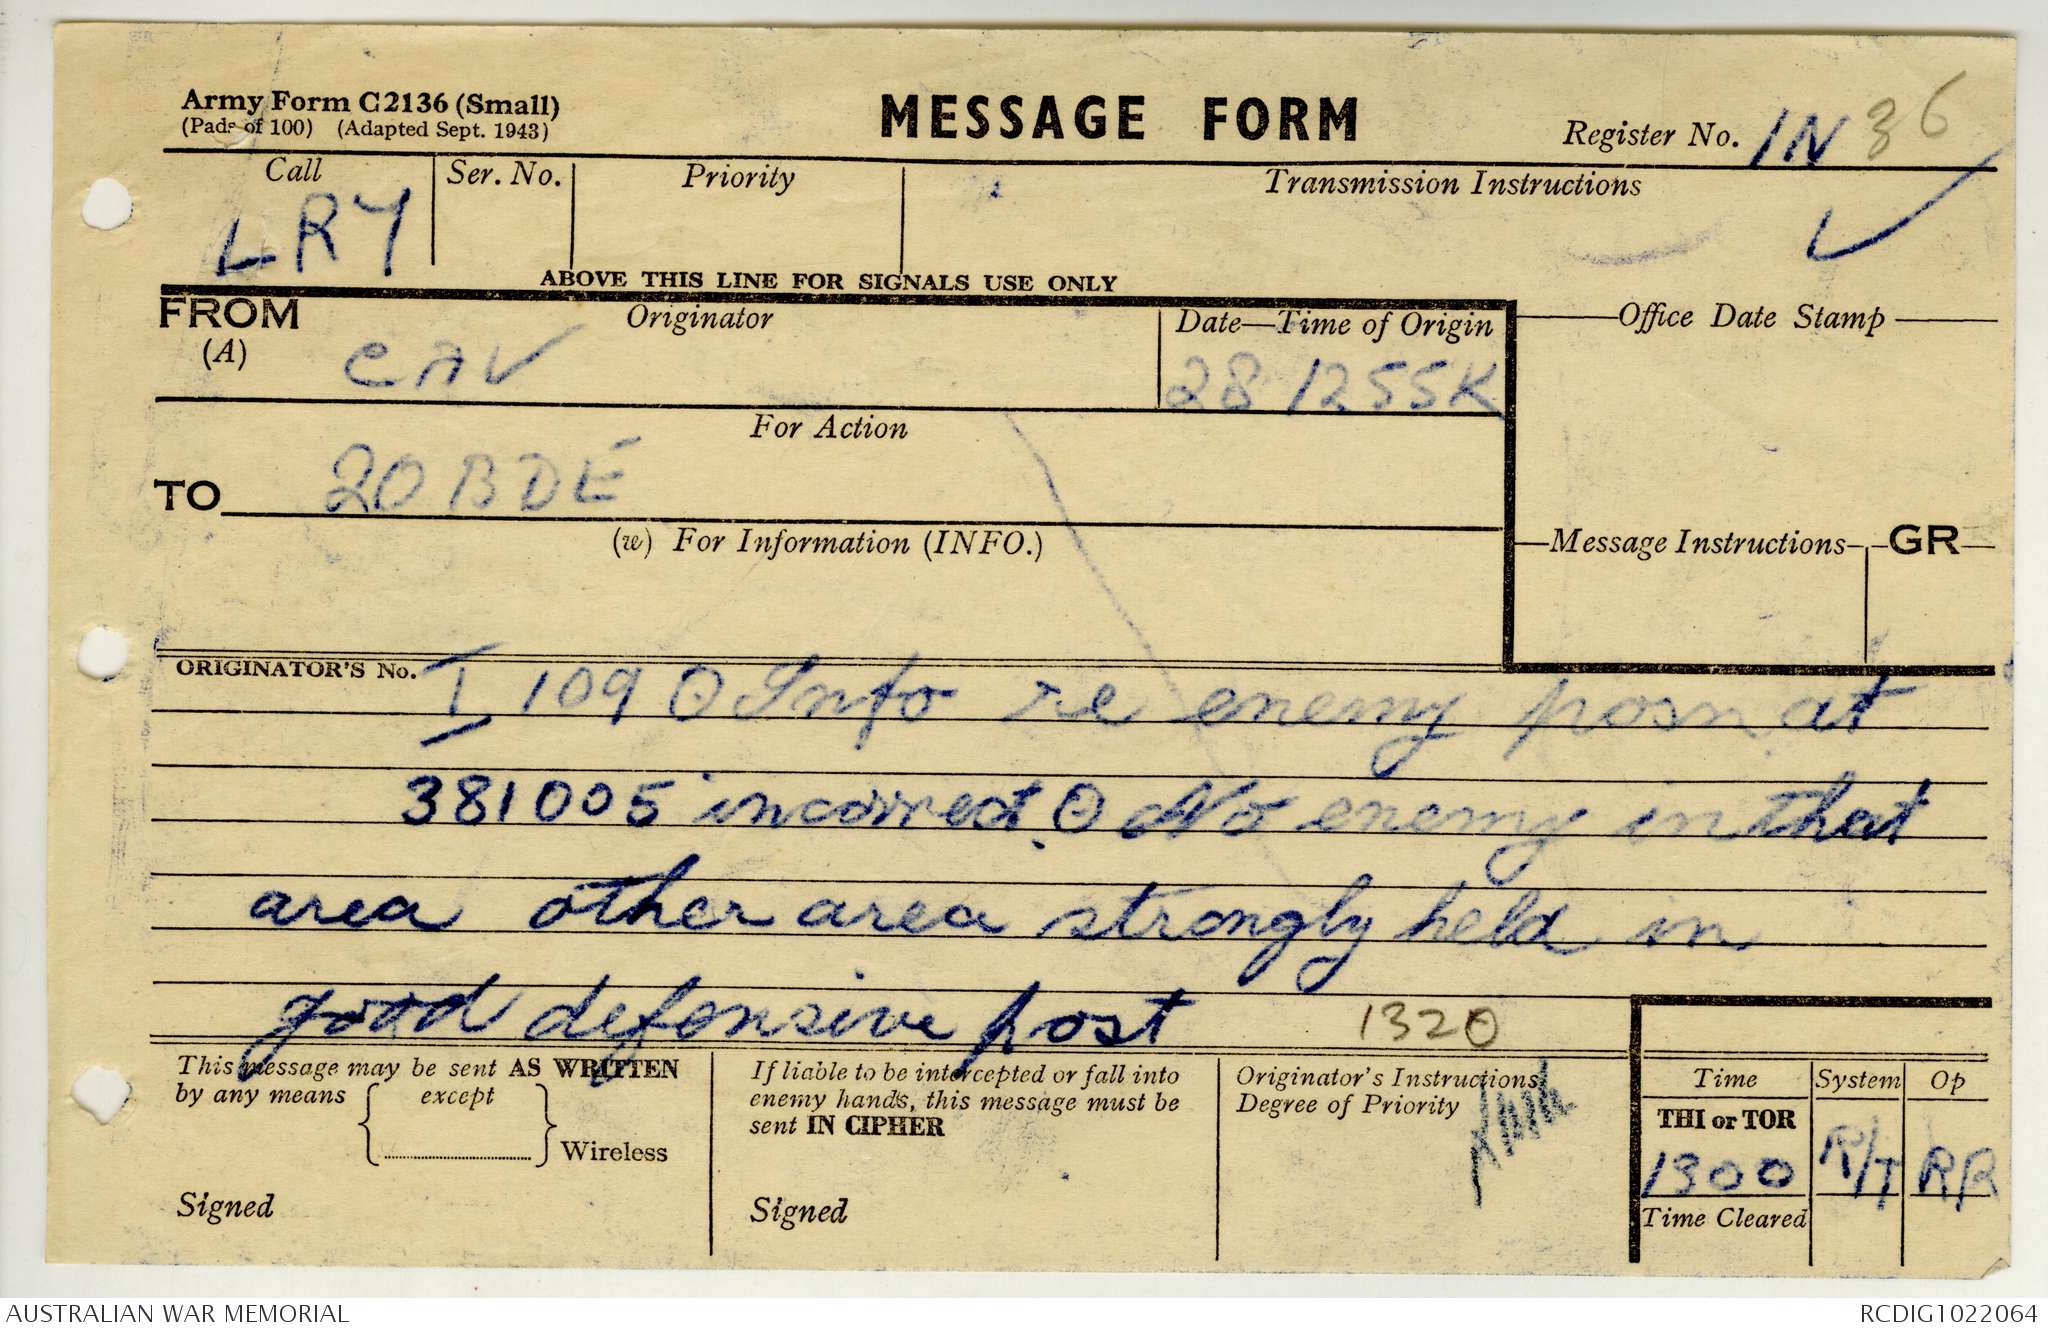 Army Form C2136 (Small)
(Pads of 100) (Adapted Sept. 1943)
MESSAGE FORM
Register No. IN 36
Call
LRY
Ser. No.
Priority
Transmission Instructions
ABOVE THIS LINE FOR SIGNALS USE ONLY
FROM
(A)
Originator
CAV
Date—Time of Origin
28 1255K
Office Date Stamp
For Action
TO 20 BDE
(w) For Information (INFO.)
Message Instructions
GR
ORIGINATOR'S No. I 109 ʘ Info re enemy posn at
381005 incorrect ʘ No enemy in that
area other area strongly held in
good defensive post 1320
This message may be sent AS WRITTEN
by any means except
Wireless
Signed
If liable to be intercepted or fall into
enemy hands, this message must be
sent IN CIPHER
Signed
Originator's Instructions
Degree of Priority
Time System Op
THI or TOR
1300 R/T RR
Time Cleared
AUSTRALIAN WAR MEMORIAL
RCDIG1022064